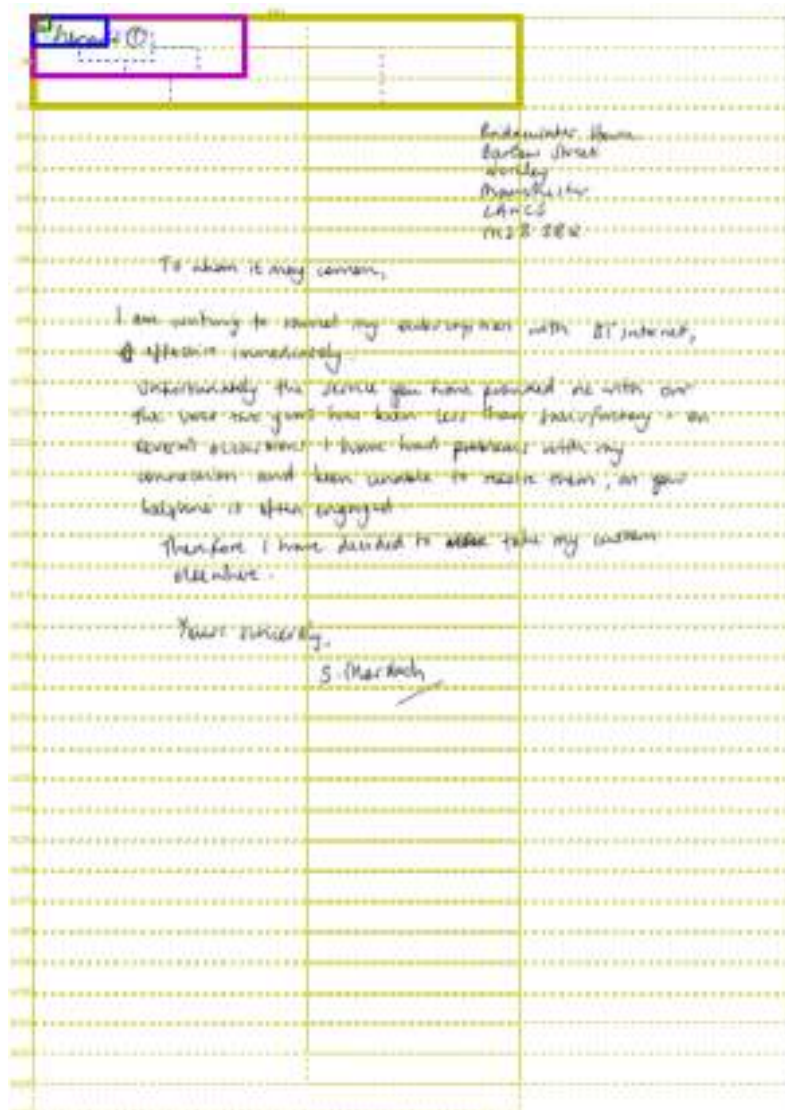 ①
Bridgewater House
Barton Street
Worsley
Manchester
LANCS
M28
To whom it may concern,
I am writing to cancel my subscription with BT internet,
effective immediately.
Unfortunately the service you have provided me with over
the past two years has been less than satisfactory - on
several occasions I have had problems with my
connection and been unable to resolve them, as your
helpline is often engaged.
Therefore I have decided to take my custom
elsewhere.
Yours sincerely,
S. Murdoch